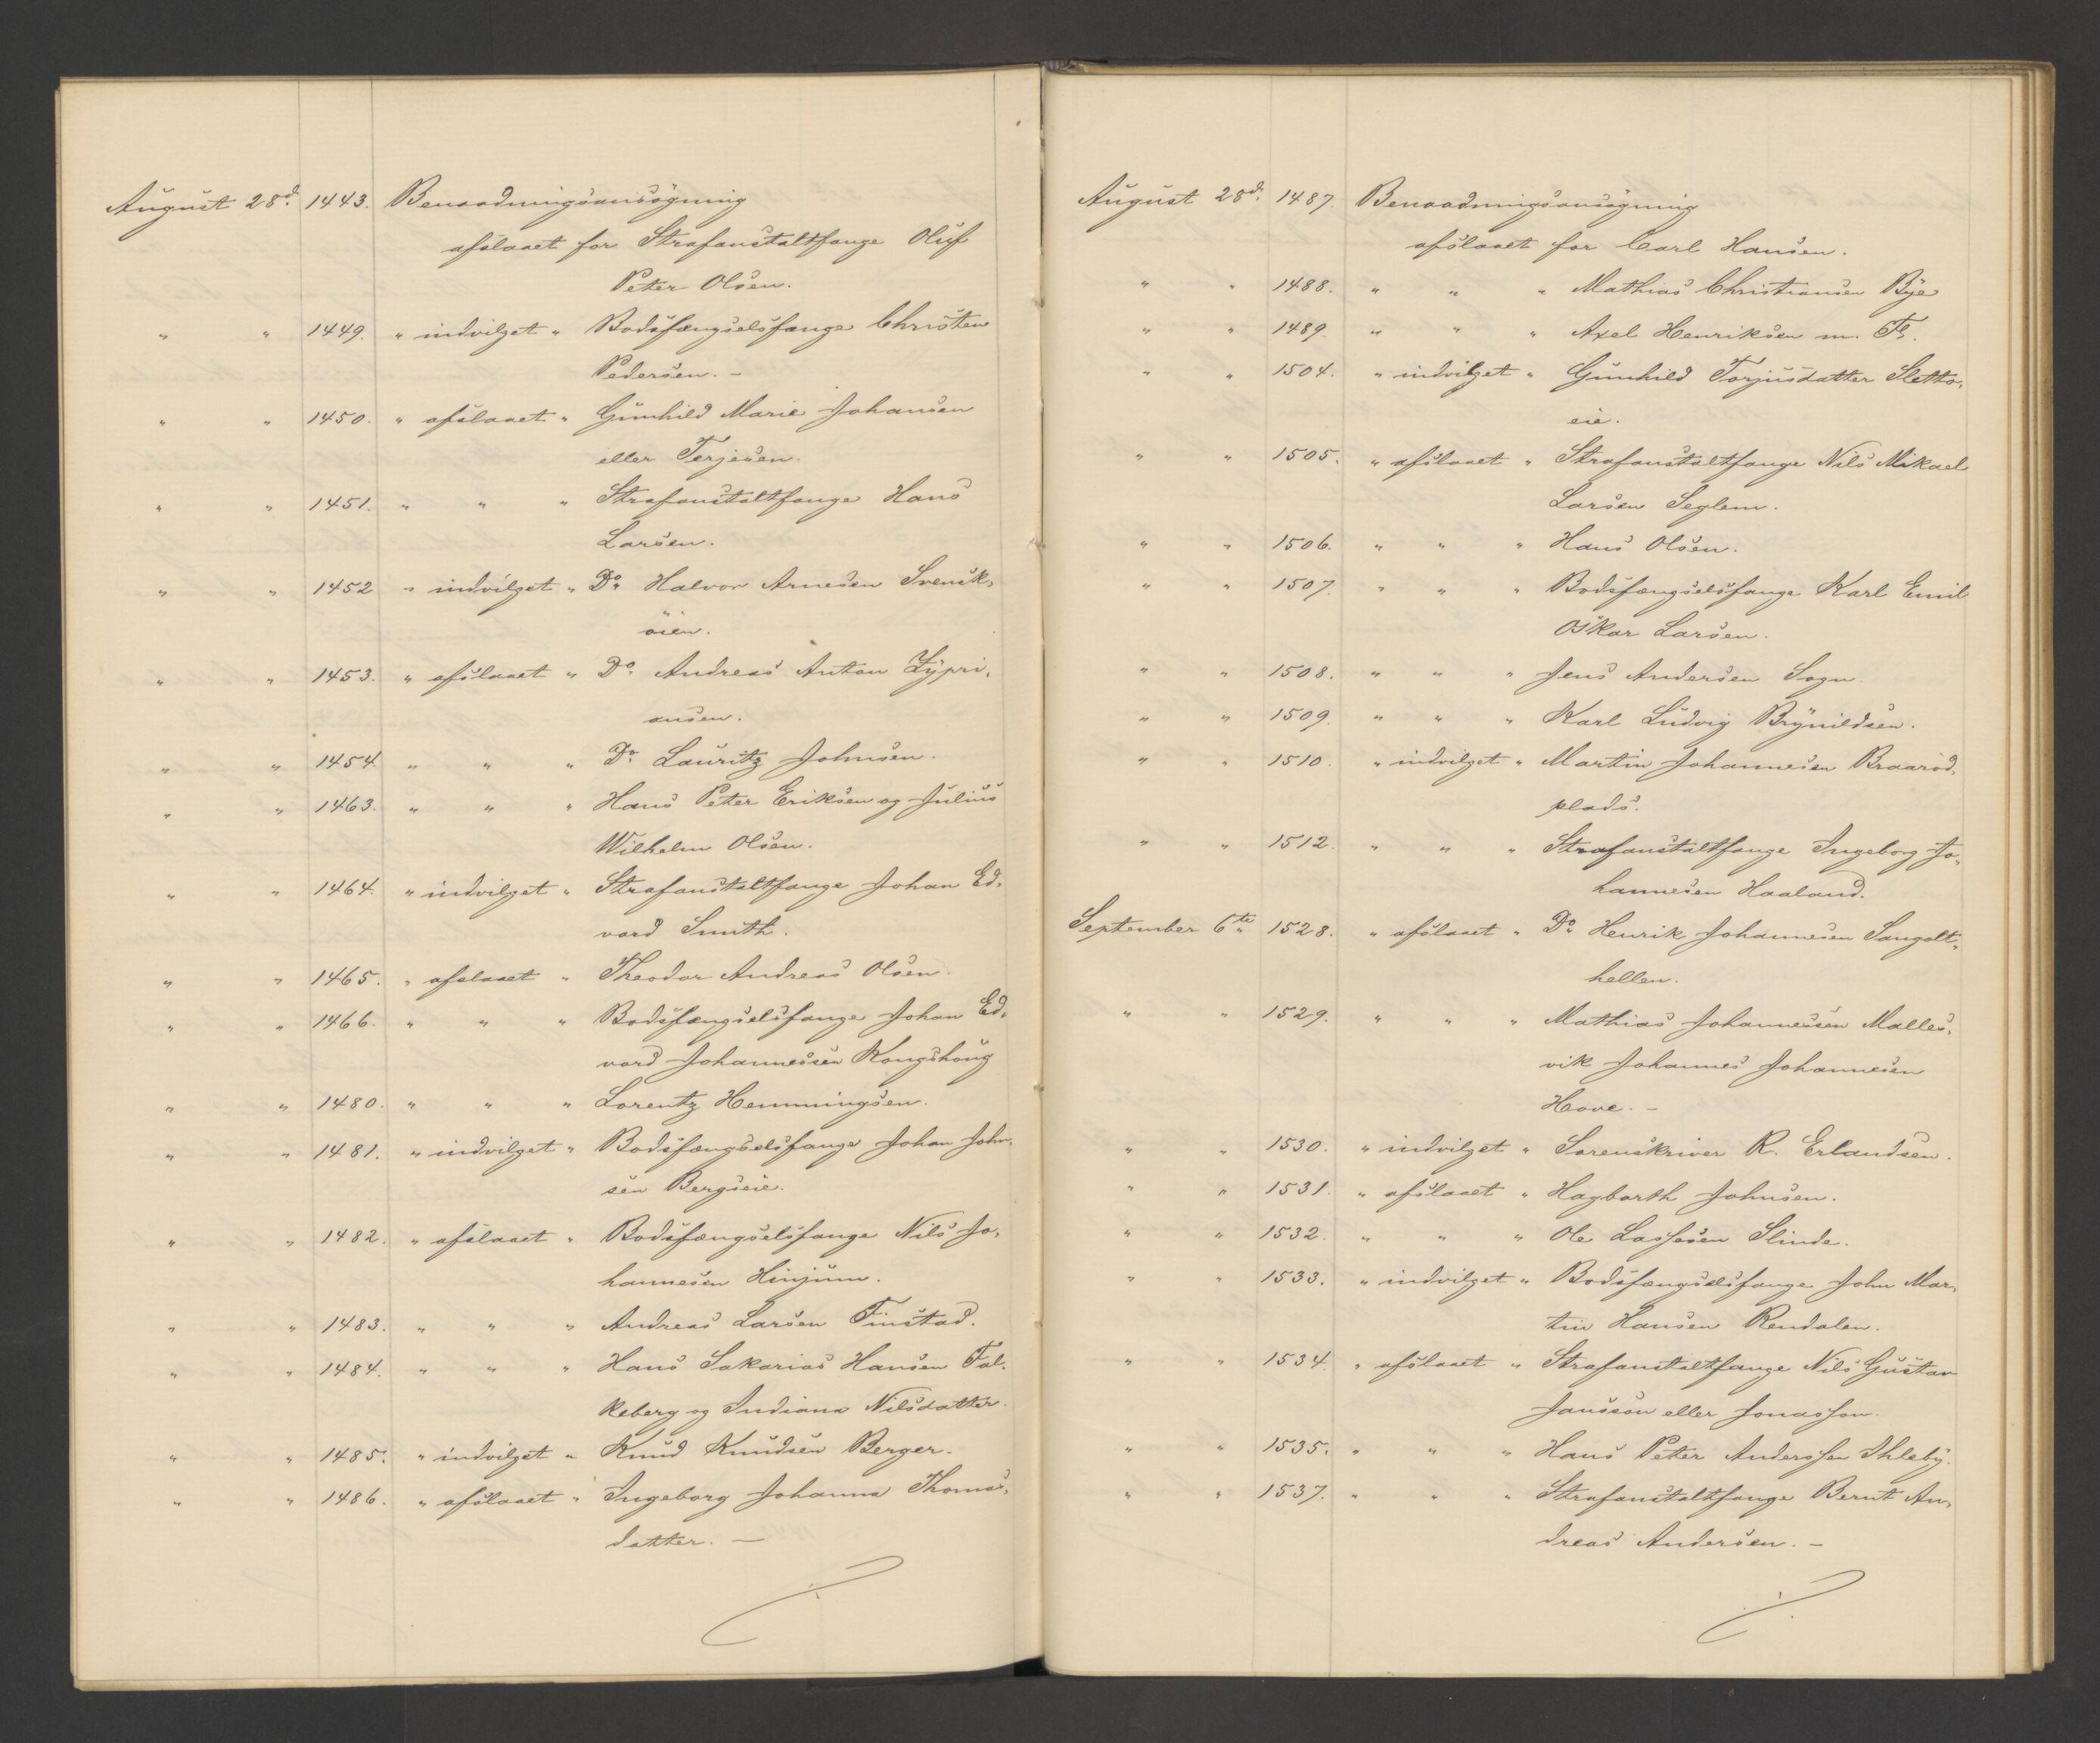 August 28d. 1443. Benaadningsansøgning
afslaaet for Strafanstaltfange Oluf
Peter Olsen.
" " 1449. " indvilget " Bodsfængselsfange Christen
Pedersen. -
" " 1450. " afslaaet " Gunhild Marie Johansen
eller Terjesen.
" " 1451. " " " Strafanstaltfange Hans
Larsen.
" " 1452 " indvilget " Do Halvor Arnesen Svensk-
øien.
" " 1453. " afslaaet " Do Andreas Anton Zypri-
ansen.
" " 1454. " " " Do Lauritz Johnsen.
" " 1463. " " " Hans Peter Eriksen og Julius
Wilhelm Olsen.
" " 1464. " indvilget " Strafanstaltfange Johan Ed-
vard Smith.
" " 1465. " afslaaet " Theodor Andreas Olsen.
" " 1466. " " " Bodsfængselsfange Johan Ed-
vard Johannessen Kongshaug
" " 1480. " " " Lorentz Hemmingsen.
" " 1481. " indvilget " Bodsfængselsfange Johan John-
sen Bergseie.
" " 1482. " afslaaet " Bodsfængselsfange Nils Jo-
hannesen Hinjum.
" " 1483. " " " Andreas Larsen Finstad.
" " 1484. " " " Hans Sakarias Hansen Fal-
keberg og Indiana Nilsdatter.
" " 1485. " indvilget " Knud Knudsen Berger.
" " 1486. " afslaaet " Ingeborg Johanna Thomas-
datter. -
August 28d. 1487. Benaadningsansøgning
afslaaet for Carl Hansen.
" " 1488. " " " Mathias Christiansen Bye
" " 1489. " " " Axel Henriksen m. Fl.
" " 1504. " indvilget " Gunhild Torjusdatter Sletto-
eie.
" " 1505. " afslaaet " Strafanstaltfange Nils Mikael
Larsen Seglem.
" " 1506. " " " Hans Olsen.
" " 1507. " " " Bodsfængselsfange Karl Emil
Oskar Larsen.
" " 1508. " " " Jens Andersen Sogn.
" " 1509. " " " Karl Ludvig Brynildsen.
" " 1510. " indvilget " Martin Johannesen Braarød-
plads.
" " 1512. " " " Strafanstaltfange Ingeborg Jo-
hannesen Haaland.
September 6te 1528. " afslaaet " Do Henrik Johannesen Sangolt-
hellen.
" " 1529. " " " Mathias Johannessen Malles-
vik Johannes Johannesen
Hove. -
" " 1530. " indvilget " Sorenskriver R. Erlandsen.
" " 1531. " afslaaet " Hagbarth Johnsen.
" " 1532. " " " Ole Lassesen Slinde.
" " 1533. " indvilget " Bodsfængselsfange John Mar-
tin Hansen Rendalen.
" " 1534. " afslaaet " Strafanstaltfange Nils Gustav
Jansson eller Jonasson.
" " 1535. " " " Hans Peter Anderssen Ihleby.
" " 1537. " " " Strafanstaltfange Bernt An-
dreas Andersen. -